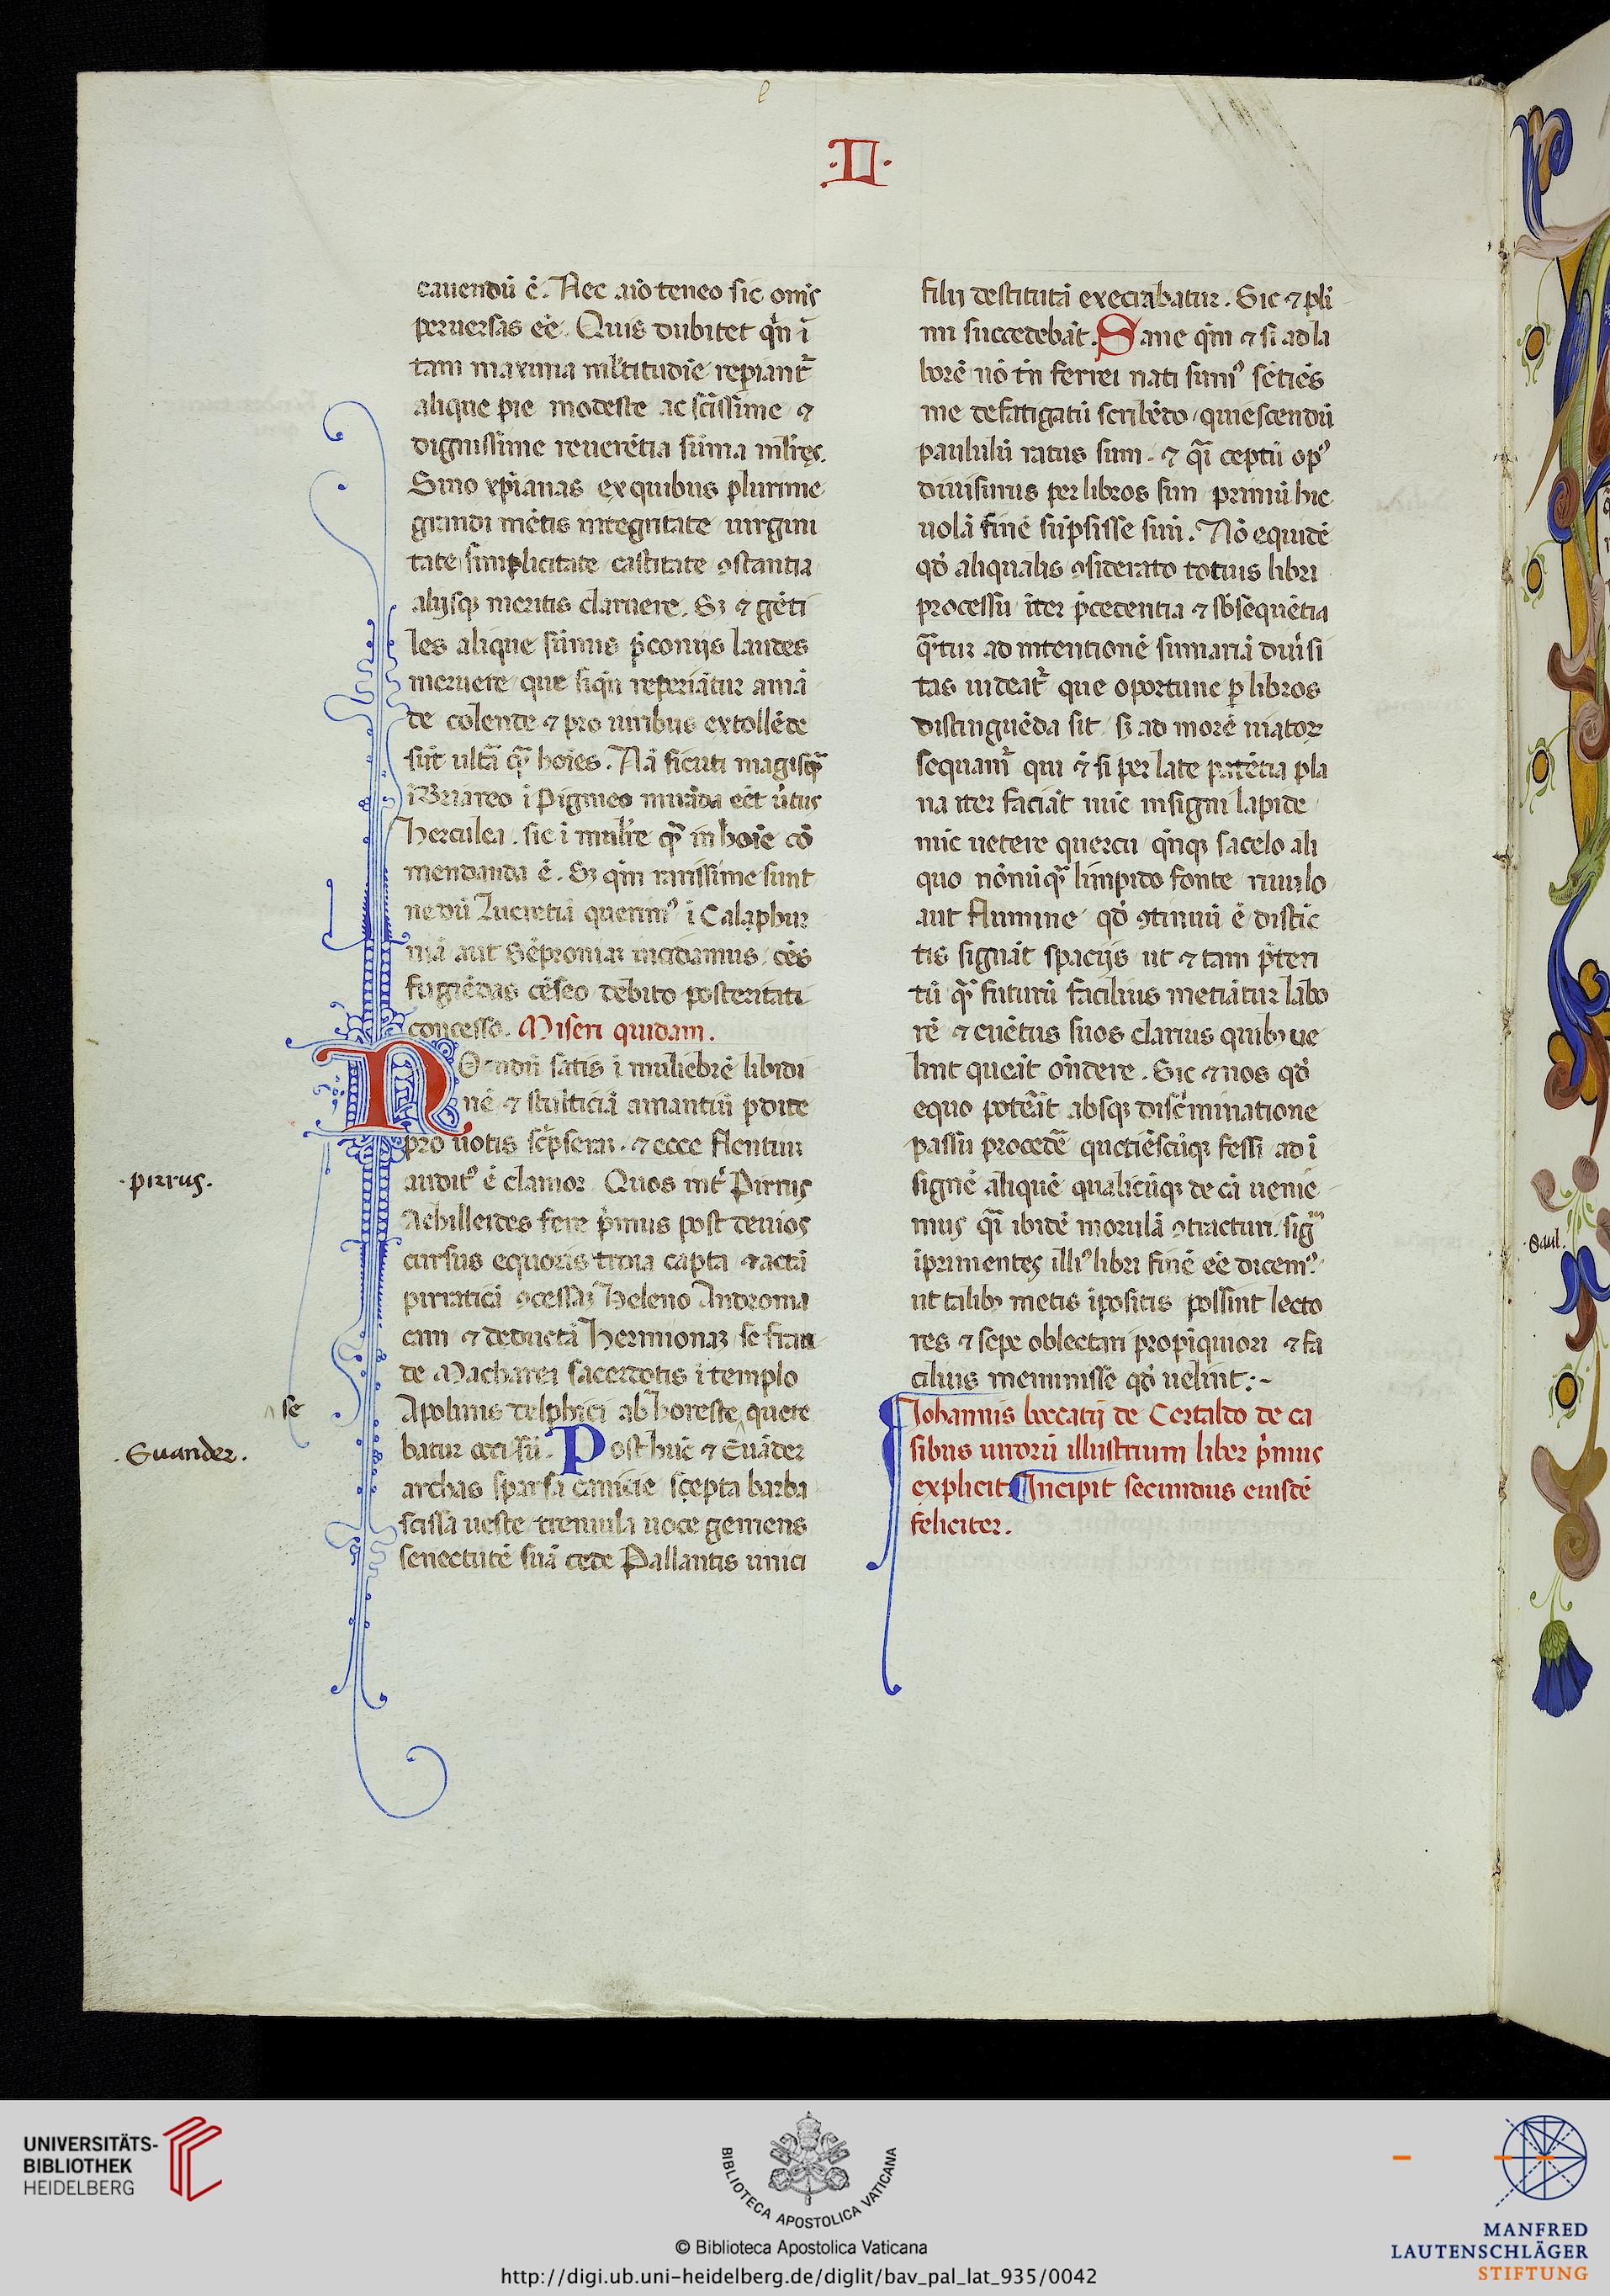 ·II·
cauendū ē. Nec aīo teneo sic om̄s
peruersas eē. Quis dubitet qn̄ ī
tam maxima ml̄titudīe repiant᷑
alique pie modeste ac sc̄issime ⁊
dignissime reuerētia sūma ml̄ies.
Sino xp̄ianas ex quibus plurime
grandi mētis integritate uirgini
tate simplicitate castitate ꝯstantia
alijsqꝫ meritis claruere. Sꝫ ⁊ gēti
les alique sūmis p̄conijs laudes
meruere que siqn̄ reperiātur amā
de colende ⁊ pro uiribus extollēde
sūt ultā qꝫ hoīes. Nā sicuti magis qꝫ
ī Briareo ī Pigmeo mirāda eēt ūtus
herculea. sic ī mulīe qꝫ in hoīe cō
mendanda ē. Sꝫ qm̄ rarissime sunt
ne dū Lucretiā querimꝰ ī Calaphur
niā aut Sēproniaꝫ incidamus. oēs
fugiēdas cēseo debito posteritati
concesso. Miseri quidam.
Nondū satis ī muliebrē libidi
nē ⁊ stulticiā amantiū ꝑdite
pro uotis sc̄pseraꝫ. ⁊ ecce flentium
auditꝰ ē clamor. Quos int᷑ Pirrus
Achilleides fere p̄mus post deuios
cursus equoris troia capta ⁊ actā
pirraticā ꝯcessaꝫ heleno Androma
cam ⁊ deductā hermionaꝫ se frau
de Macharei sacerdotis ī templo
Apolinis delphici ab horeste quere
batur occisū. Post hūc ⁊ Euāder
archas sparsa canicie scepta barba
scissa ueste tremula uoce gemens
senectutē suā cede Pallantis unici
·pirrus.
se
·Euander.
filij destitutā execrabatur. Sic ⁊ pli
mi succedebāt. Sane qm̄ ⁊ si ad la
borē nō tn̄ ferrei nati sumꝰ sētiēs
me defatigatū scribēdo quiescendū
paululū ratus sum. ⁊ qꝫ ceptū opꝰ
diuisimus per libros sim primū hic
uolā finē sūpsisse sim. Nō equidē
qđ aliqualis ꝯsiderato totius libri
processu iter p̄cedentia ⁊ sb̄sequētia
q̄tur ad intentionē sumariā diūsi
tas uideat᷑ que oportune ꝑ libros
distinguēda sit sꝫ ad morē uiatoꝝ
sequam᷑ qui ⁊ si per late patētia pla
na iter faciāt nūc insigni lapide
nūc uetere quercu qn̄qꝫ sacelo ali
quo nōnūqꝫ limpido fonte riuulo
aut flumine qđ ꝯtinuū ē distīc
tis signāt spacijs ut ⁊ tam p̄teri
tū qꝫ futurū facilius metiātur labo
rē ⁊ euētus suos clarius quibꝫ ue
lint queāt on̄dere. Sic ⁊ nos qđ
equo poterāt absqꝫ disc̄minatione
passu procedē quotiēscūqꝫ fessi ad ī
signē aliquē qualicūqꝫ de cā uenie
mus qꝫ ibidē morulā ꝯtracturi. sigᵐ
īprimentes illiꝰ libri finē eē dicemꝰ
ut talibꝫ metis īpositis possint lecto
res ⁊ sepe oblectari propīquiori ⁊ fa
cilius meminisse qđ uelint:~
Iohannis boccatij de Certaldo de ca
sibus uirorū illustrium liber p̄mus
explicit. Incipit secundus eiusdē
feliciter.
·Saul.
UNIVERSITÄTS-
BIBLIOTHEK
HEIDELBERG
BIBLIOTECA APOSTOLICA VATICANA
© Biblioteca Apostolica Vaticana
http://digi.ub.uni-heidelberg.de/diglit/bav_pal_lat_935/0042
MANFRED
LAUTENSCHLÄGER
STIFTUNG